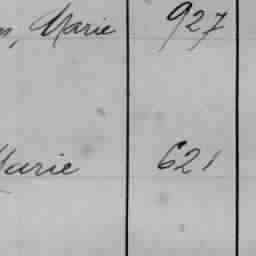 Marie 927
Marie 621